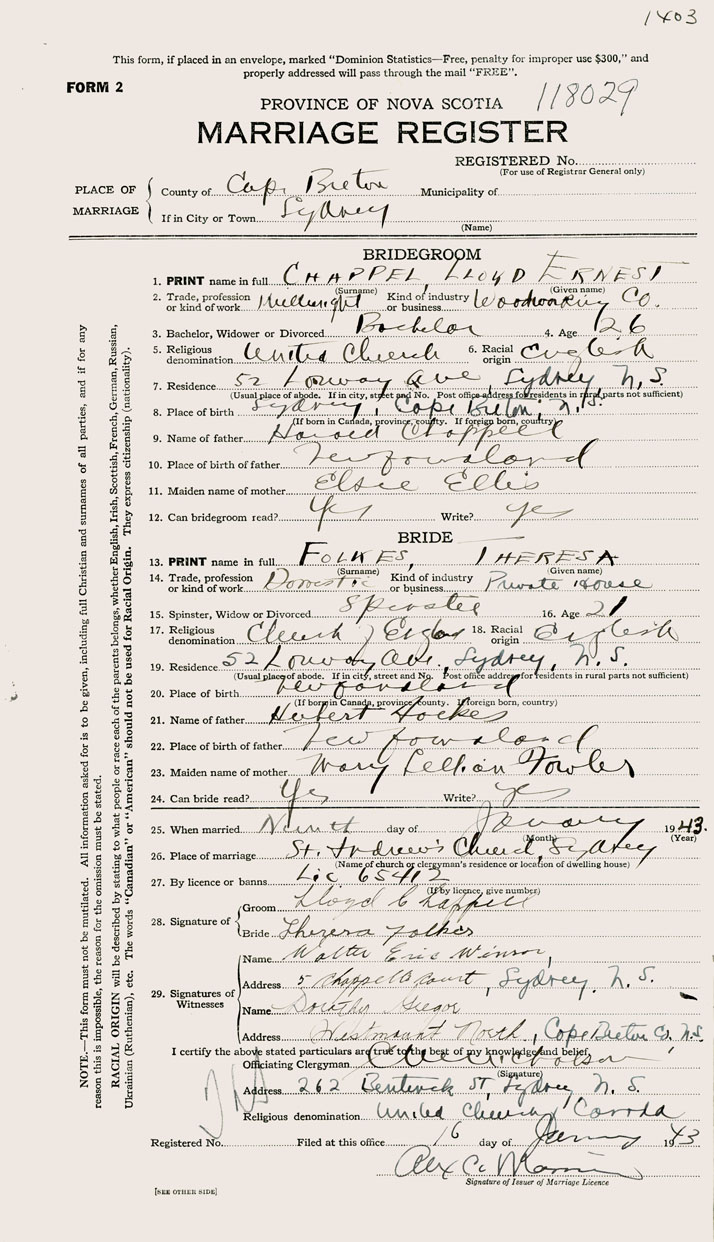 1403
This form, if placed in an envelope, marked "Dominion Statistics—Free, penalty for improper use $300," and
properly addressed will pass through the mail "FREE".
FORM 2
PROVINCE OF NOVA SCOTIA 118029
MARRIAGE REGISTER
REGISTERED No.
(For use of Registrar General only)
PLACE OF MARRIAGE
County of Cape Breton Municipality of
If in City or Town Sydney
(Name)
BRIDEGROOM
1. PRINT name in full CHAPPEL, LLOYD ERNEST
(Surname) (Given name)
2. Trade, profession or kind of work Millwright Kind of industry or business Woodworking Co.
3. Bachelor, Widower or Divorced Bachelor 4. Age 26
5. Religious denomination United Church 6. Racial origin English
7. Residence 52 Lorway Ave, Sydney N.S.
(Usual place of abode. If in city, street and No. Post office address for residents in rural parts not sufficient)
8. Place of birth Sydney, Cape Breton, N.S.
(If born in Canada, province, county. If foreign born, country)
9. Name of father Harold Chappell
10. Place of birth of father Newfoundland
11. Maiden name of mother Elsie Ellis
12. Can bridegroom read? Yes Write? yes
BRIDE
13. PRINT name in full FOLKES, THERESA
(Surname) (Given name)
14. Trade, profession or kind of work Domestic Kind of industry or business Private House
15. Spinster, Widow or Divorced Spinster 16. Age 21
17. Religious denomination Church of England 18. Racial origin English
19. Residence 52 Lorway Ave., Sydney, N.S.
(Usual place of abode. If in city, street and No. Post office address for residents in rural parts not sufficient)
20. Place of birth Newfoundland
(If born in Canada, province county. If foreign born, country)
21. Name of father Hubert
22. Place of birth of father Newfoundland
23. Maiden name of mother Mary Lillian Fowler
24. Can bride read? Yes Write? Yes
25. When married Ninth day of January 1943.
(Month) (Year)
26. Place of marriage St. Andrew's Church, Sydney
(Name of church or clergyman's residence or location of dwelling house)
27. By licence or banns Lic 65412
(If by licence, give number)
28. Signature of
Groom Lloyd Chappell
Bride Theresa Folkes
29. Signatures of Witnesses
Name Walter Eric Winsor,
Address 5 Chappell Court, Sydney N.S.
Name Dorothy Gregor
Address Westmount North, Cape Breton Co. N.S.
I certify the above stated particulars are true to the best of my knowledge and belief.
Officiating Clergyman
(Signature)
Address 262 Bentinck St, Sydney N.S.
Religious denomination United Church Canada
Registered No. Filed at this office 16 day of January 1943
Alex C.
Signature of Issuer of Marriage Licence
[SEE OTHER SIDE]
NOTE.—This form must not be mutilated. All information asked for is to be given, including full Christian and surnames of all parties, and if for any
reason this is impossible, the reason for the omission must be stated.
RACIAL ORIGIN will be described by stating to what people or race each of the parents belongs, whether English, Irish, Scottish, French, German, Russian,
Ukrainian (Ruthenian), etc. The words "Canadian" or "American" should not be used for Racial Origin. They express citizenship (nationality).